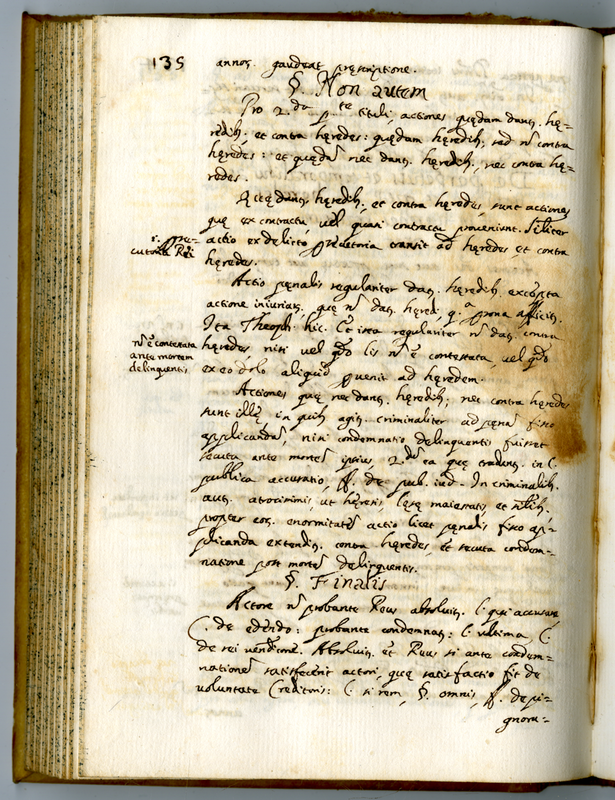 135
annos. gaudeat pręscriptione.
§. Non autem
Pro 2.da p.te tituli, actiones quędam dant. hę=
redib; et contra hęredes: quędam hęredib, sed n contra
hęredes: et quędā nec dant. hęredib, nec contra hę=
redes.
Actę dant. hęredib, et contra hęredes, sunt actiones
quę ex contractu, vel quasi contractu proveniunt. Siliter
actio ex delicto prętoria transit ad hęredes et contra
hęredes.
cutoria Rei
Actio pęnalis regulariter dat. hęredib, excepta
actione iniuriar, quę n dat. hęred,
Ita Theoph. hic. ita regulariter n dat. contra
hęredes, nisi vel qdo lis n ē contestata, vel qdo
ex eo dolo aliquid pvenit ad hęredem.
n ē contestata
ante mortem
delinquentis
Actiones quę nec dant. hęredib, nec contra hęredes
sunt illę in quib, agit. criminaliter ad pęnā fisco
applicandā, nisi condemnatio delinquentis fuisset
secuta ante mortē ipsius, 2.dū ea quę tradunt. in l.
publica accusatio, ff. de pub. iud. In criminalib.
aut. atrocioribus, ut hęresis, lęsę maiestatis, et silib,
propter eor. enormitatē actio licet pęnalis fisco ap=
plicanda extendit. contra hęredes et secuta condem=
natione post mortē delinquentis.
§. Finalis
Actore n probante Reus absolvit. l. qui accusare
C. de edendo: probante condemnat: l. ultima, C.
de rei vendicone. Absolvit. et Reus si ante condem=
nationē satisfecerit actori, quę satisfactio fit de
voluntate Creditoris: l. si rem, §. omnis, ff. de pi=
gnora:=